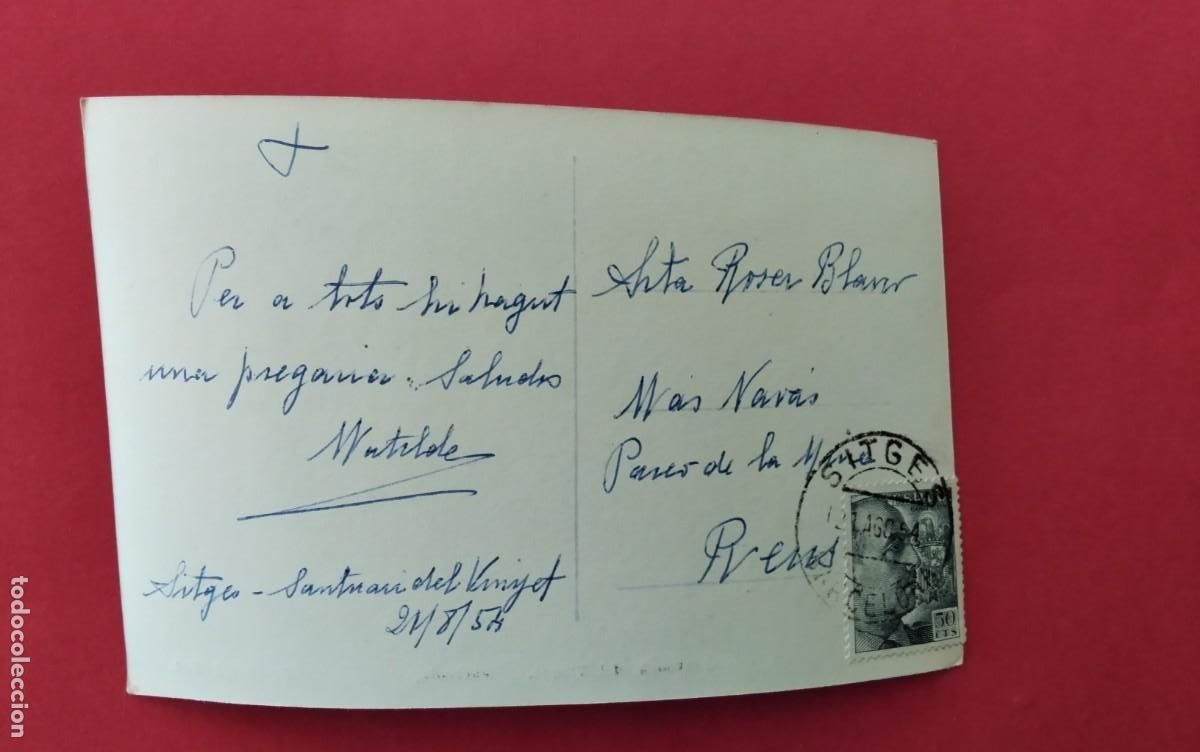 Per a tots hi hagut
una pregaria. Saludos
Matilde
Sitges - Santuari del Vinyet
21/8/54
Srta Roser Blanc
Más Navás
Paseo de la
Reus
SITGES
AGO 54
BARCELONA
50
CTS
todocoleccion